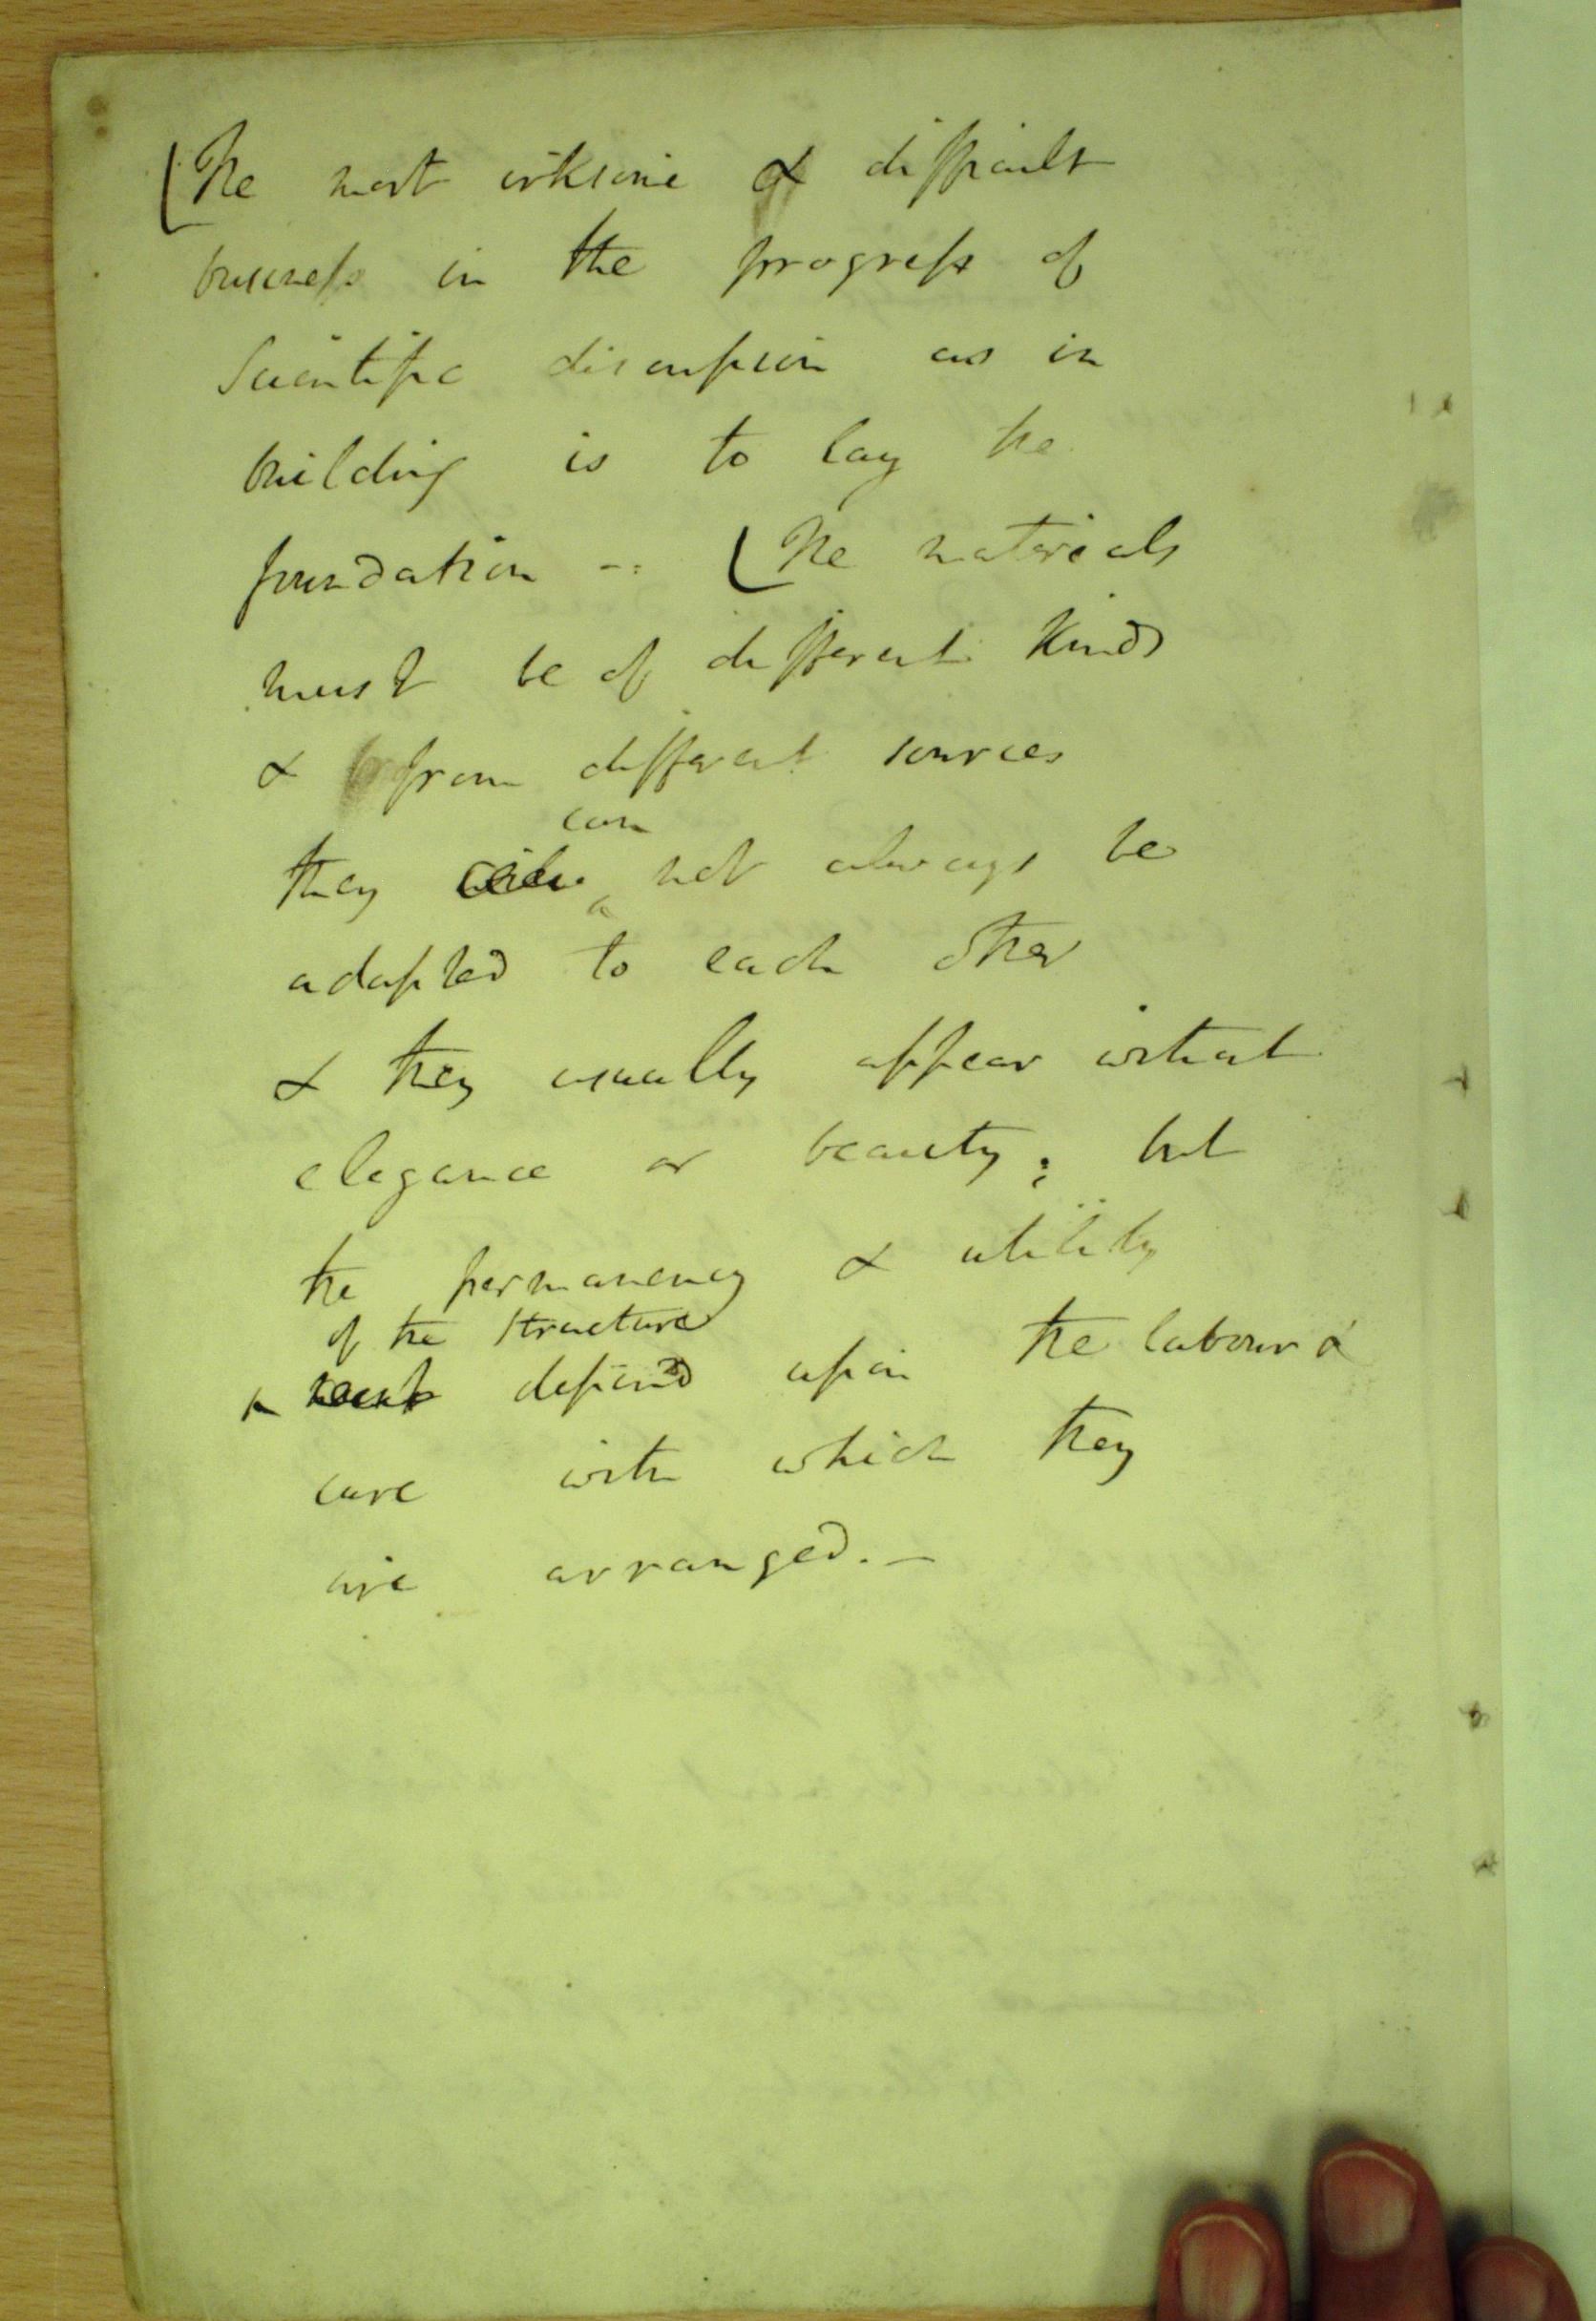 [The most irksome & difficult
business in the progress of
Scientific discussion as in
building is to lay the
foundation -: [The materials
must be of different Kinds
& from different sources
can
they not always be
adapted to each other
& they usually appear without
elegance or beauty; but
the permanency & utility
of the structure
must depend upon the labour &
care with which they
are arranged. —